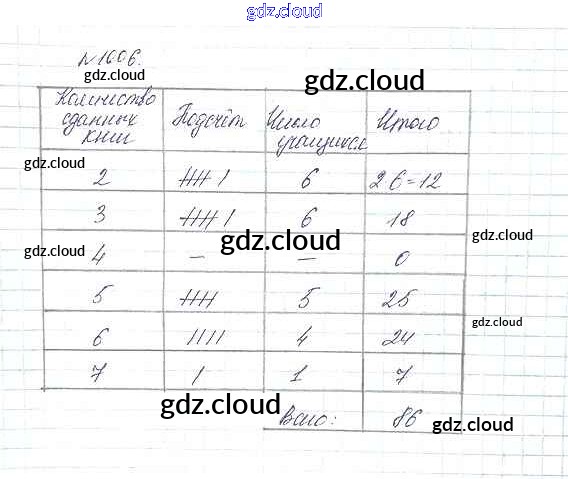 gdz.cloud
№1006.
gdz.cloud
gdz.cloud
Количество сданных книг Подсчёт Число учащихся Итого
gdz.cloud
2 ̶I̶I̶I̶I̶ I 6 2·6=12
3 ̶I̶I̶I̶I̶ I 6 18
gdz.cloud
gdz.cloud
gdz.cloud
4 — — 0
5 ̶I̶I̶I̶I̶ 5 25
gdz.cloud
6 IIII 4 24
7 I 1 7
gdz.cloud
gdz.cloud
Всего: 86
gdz.cloud